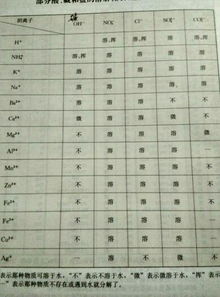 部分酸、碱和盐的溶解
阴离子 OH⁻ NO₃⁻ Cl⁻ SO₄²⁻ CO₃²⁻
H⁺ 溶、挥 溶、挥 溶 溶、挥
NH₄⁺ 溶、挥 溶 溶 溶 溶
K⁺ 溶 溶 溶 溶 溶
Na⁺ 溶 溶 溶 溶 溶
Ba²⁺ 溶 溶 溶 不 不
Ca²⁺ 微 溶 溶 微 不
Mg²⁺ 不 溶 溶 溶 微
Al³⁺ 不 溶 溶 溶 —
Mn²⁺ 不 溶 溶 溶 不
Zn²⁺ 不 溶 溶 溶 不
Fe²⁺ 不 溶 溶 溶 不
Fe³⁺ 不 溶 溶 溶 —
Cu²⁺ 不 溶 溶 溶
Ag⁺ — 溶 不 微 不
表示那种物质可溶于水，“不”表示不溶于水，“微”表示微溶于水，“挥”表示
—”表示那种物质不存在或遇到水就分解了。